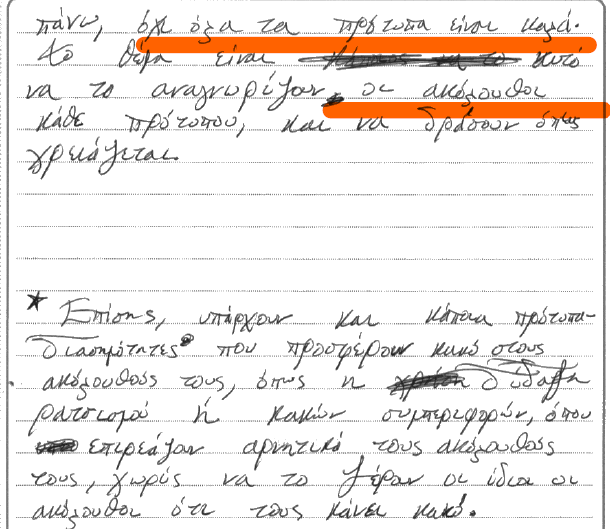 πάνω, όχι όλα τα πρότυπα είναι καλά.
Το θέμα είναι αυτό
να το αναγνωρίζουν οι ακόλουθοι
κάθε πρότυπου, και να δράσουν όπως
χρειάζεται.
* Επίσης, υπάρχουν και κάποια πρότυπα-
διασημότητες που προσφέρουν κακό στους
ακόλουθούς τους, όπως η διδαχή
ρατσισμού ή κακών συμπεριφορών, όπου
επιρεάζουν αρνητικά τους ακόλουθούς
τους, χωρίς να το ξέρουν οι ίδιοι οι
ακόλουθοι ότι τους κάνει κακό.